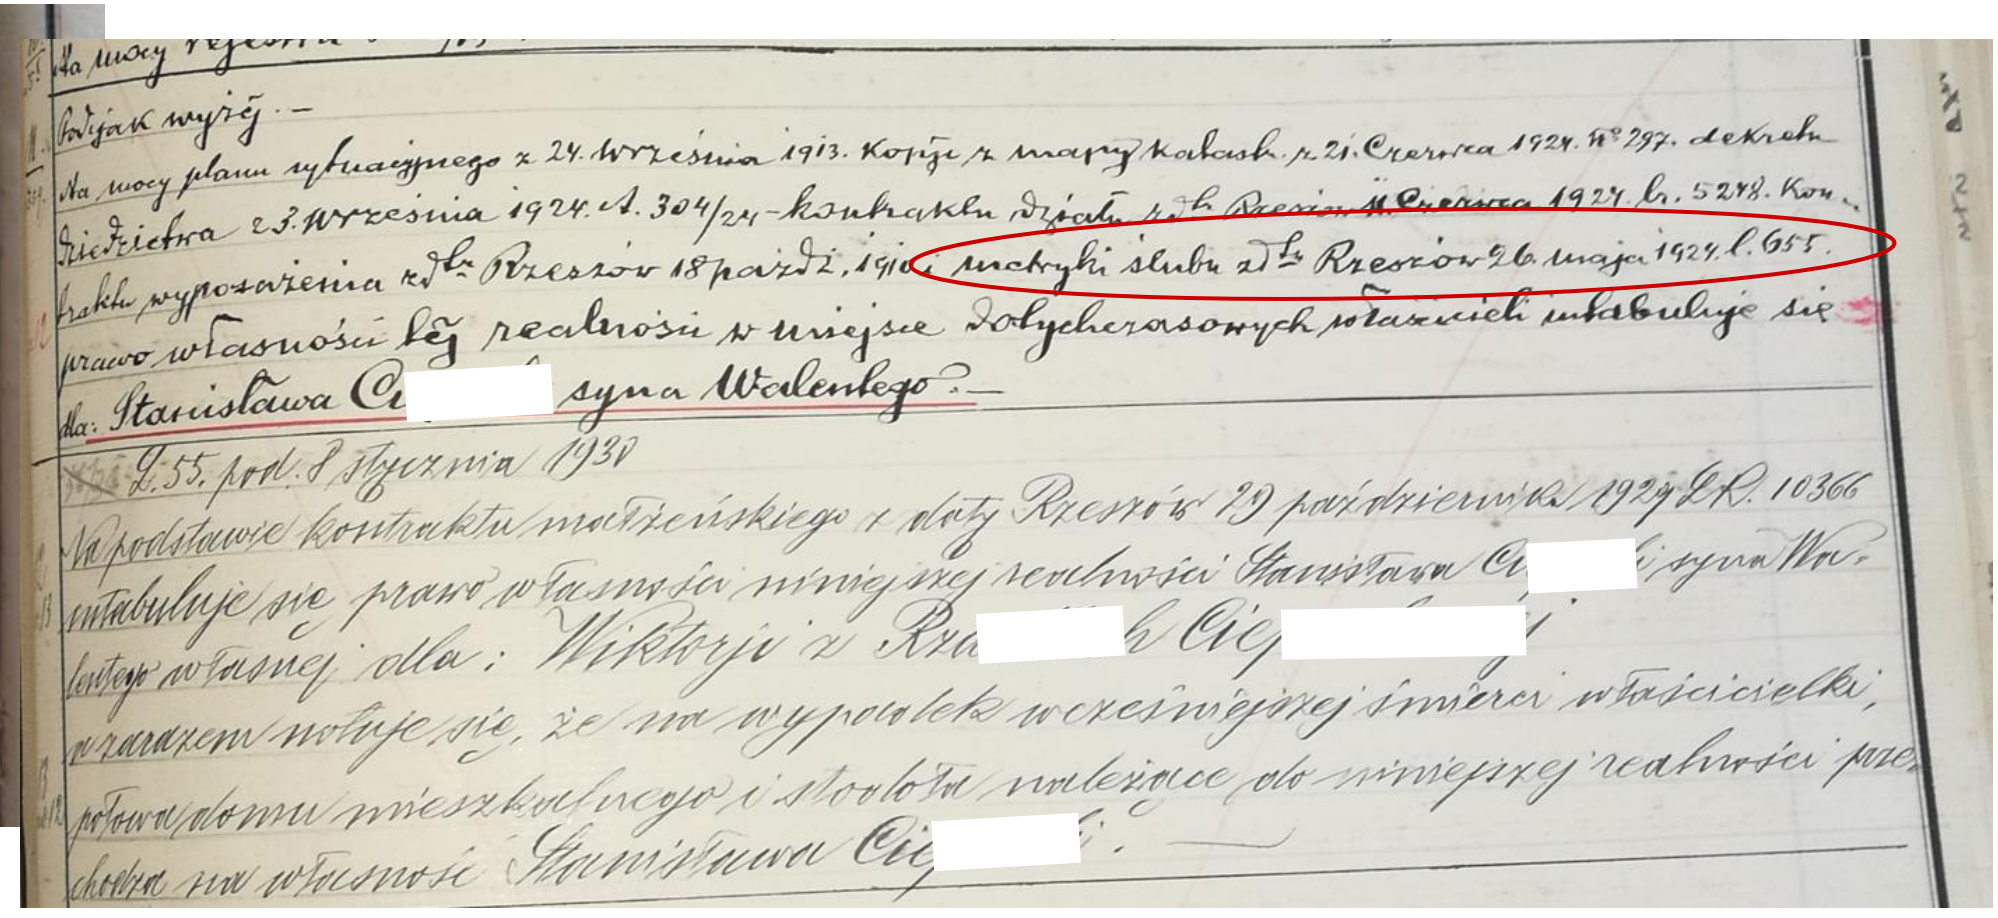 Na mocy rejestru
Podijak wyżej. —
Na mocy planu sytuacyjnego z 24. Września 1913. Kopji z mapy katastr. z 21. Czerwca 1924. No 297. dekretu
dziedzictwa 23. Września 1924. A. 304/24 - kontraktu działu zdto Rzeszów 11. Czerwca 1924. lr. 5248. Kon-
traktu wyposażenia zdto Rzeszów 18 paźdź. 1910 i metryki ślubu zdto Rzeszów 26. maja 1924. l. 655.
prawo własności tej realności w miejsce dotychczasowych właścicieli intabuluje się
dla: Stanisława Ci syna Walentego. —
L. 55. pod. 8 stycznia 1930
Na podstawie kontraktu małżeńskiego z daty Rzeszów 29 października 1929 LR. 10366
intabuluje się prawo własności niniejszej realności Stanisława Ci i syna Wa-
lentego własnej dla: Wiktorji z Rzą h Ciep j
a zarazem notuje się, że na wypadek wcześniejszej śmierci właścicielki,
połowa domu mieszkalnego i stodoła należące do niniejszej realności prze-
chodzą na własność Stanisława Ciep i. —